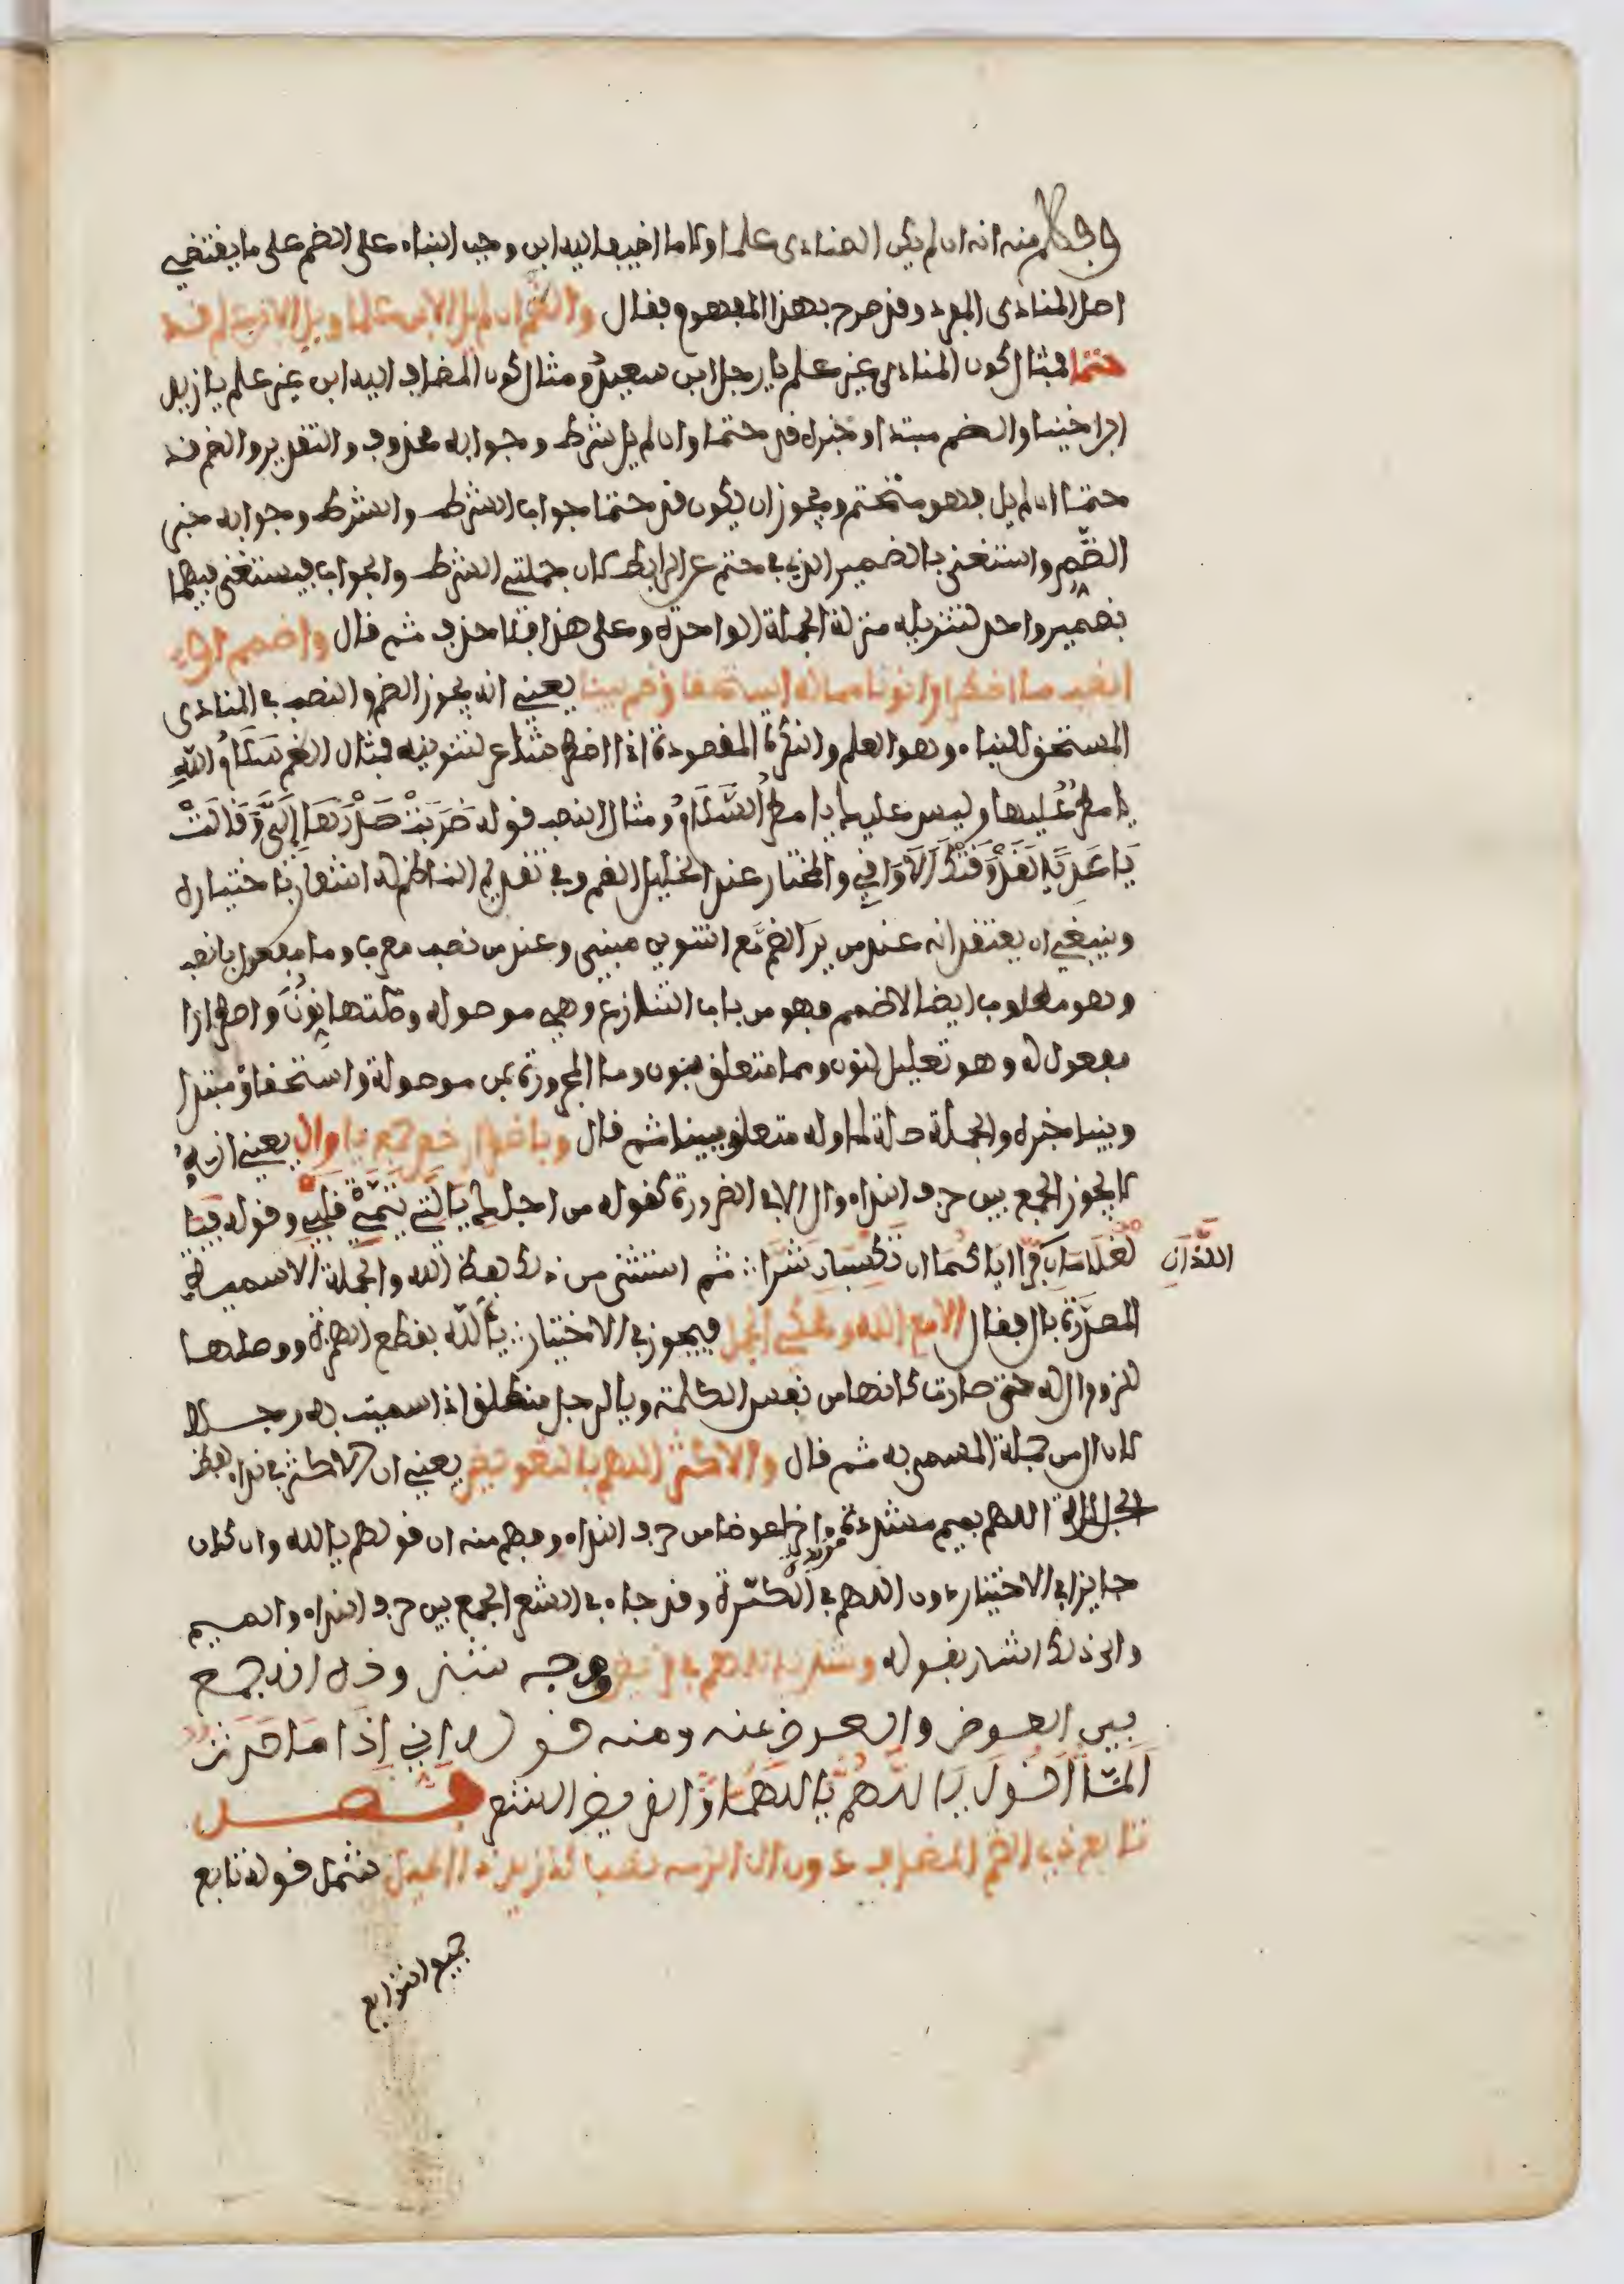 وفهم منه انه ان لم يكن المنادى علما او كان ما اضيف اليه ابن وجب البناء على الضم على ما يقتضيه
اصل المنادى المفرد وقد صرح بهذا المفهوم فقال والضم ان لم يل الابن علما ويل الابن علم قد
حتما فمثال كون المنادى غير علم يا رجل ابن سعيد ومثال كون المضاف اليه ابن غير علم يا زيد
ابن اخينا والضم مبتدا وخبره قد حتما وان لم يل شرط وجوابه محذوف والتقدير والضم قد
حتما ان لم يل فهو متحتم ويجوز ان يكون قد حتما جواب الشرط والشرط وجوابه خبر
الضم واستغنى بالضمير الذي في حتم عن الرابط لان جملتي الشرط والجواب يستغنى فيهما
بضمير واحد لتنزيله منزلة الجملة الواحدة وعلى هذا فلا حذف ثم قال واضمم او
انصب ما اضطرارا نونا مما له استحقاق ضم بينا يعني انه يجوز الضم والنصب في المنادى
المستحق للبناء وهو العلم والنكرة المقصودة اذا اضطر شاعر لتنوينه فمثال الضم سَلَامُ اللهِ
يا مطرٌ عليها وليس عليك يا مطرُ السَّلَامُ ومثال النصب قوله ضَرَبَتْ صَدْرَهَا إِلَيَّ وَقَالَتْ
يَا عَدِيًّا لَقَدْ وَقَتْكَ الْأَوَاقِي والمختار عند الخليل الضم وفي تقديم الناظم له اشعار باختياره
وينبغي ان يعتقد انه عند من يرى الضم مع التنوين مبني وعند من نصب معربا وما مفعول بانصب
وهو مطلوب ايضا لاضمم فهو من باب التنازع وهي موصولة وصلتها نُوِّنَ واضطرارا
مفعول له وهو تعليل لنون ومما متعلق بنون وما المجرورة بمن موصولة واستحقاق مبتدا
وبينا خبره والجملة صلة لما وله متعلق ببينا ثم قال وباضطرار خص جمع يا وال يعني انه
لا يجوز الجمع بين حرف النداء وال الا في الضرورة كقوله من اجلك يا التي تيمت قلبي وقوله فيا
الغلامان اللذان فرا اياكما ان تكسبان شرا ثم استثنى من ذلك لفظة الله والجملة الاسمية
المصدرة بال فقال الا مع الله ومحكي الجمل فيجوز في الاختيار يا ألله بقطع الهمزة ووصلها
للزوم ال له حتى صارت كانها من نفس الكلمة ويا لرجل منطلق اذا سميت به رجلا
لان ال من جملة المسمى به ثم قال والاكثر اللهم بالتعويض يعني ان الاكثر في نداء لفظ
الجلالة اللهم بميم مشددة مزيدة اخرا عوضا من حرف النداء وفهم منه ان قولهم يا الله وان كان
جايزا في الاختيار دون اللهم في الكثرة وقد جاء في الشعر الجمع بين حرف النداء والميم
والى ذلك اشار بقوله وشذ يا اللهم في قريض وجه شذوذه انه جمع
بين العوض والمعوض عنه ومنه قوله اني إذا ما حدث
ألَمَّا أقول يا اللَّهُمَّ يا اللَّهُمَّا والقريض الشعر فصل
تابع ذي الضم المضاف دون ال الزمه نصبا كازيد ذا الحيل شمل قوله تابع
جميع التوابع